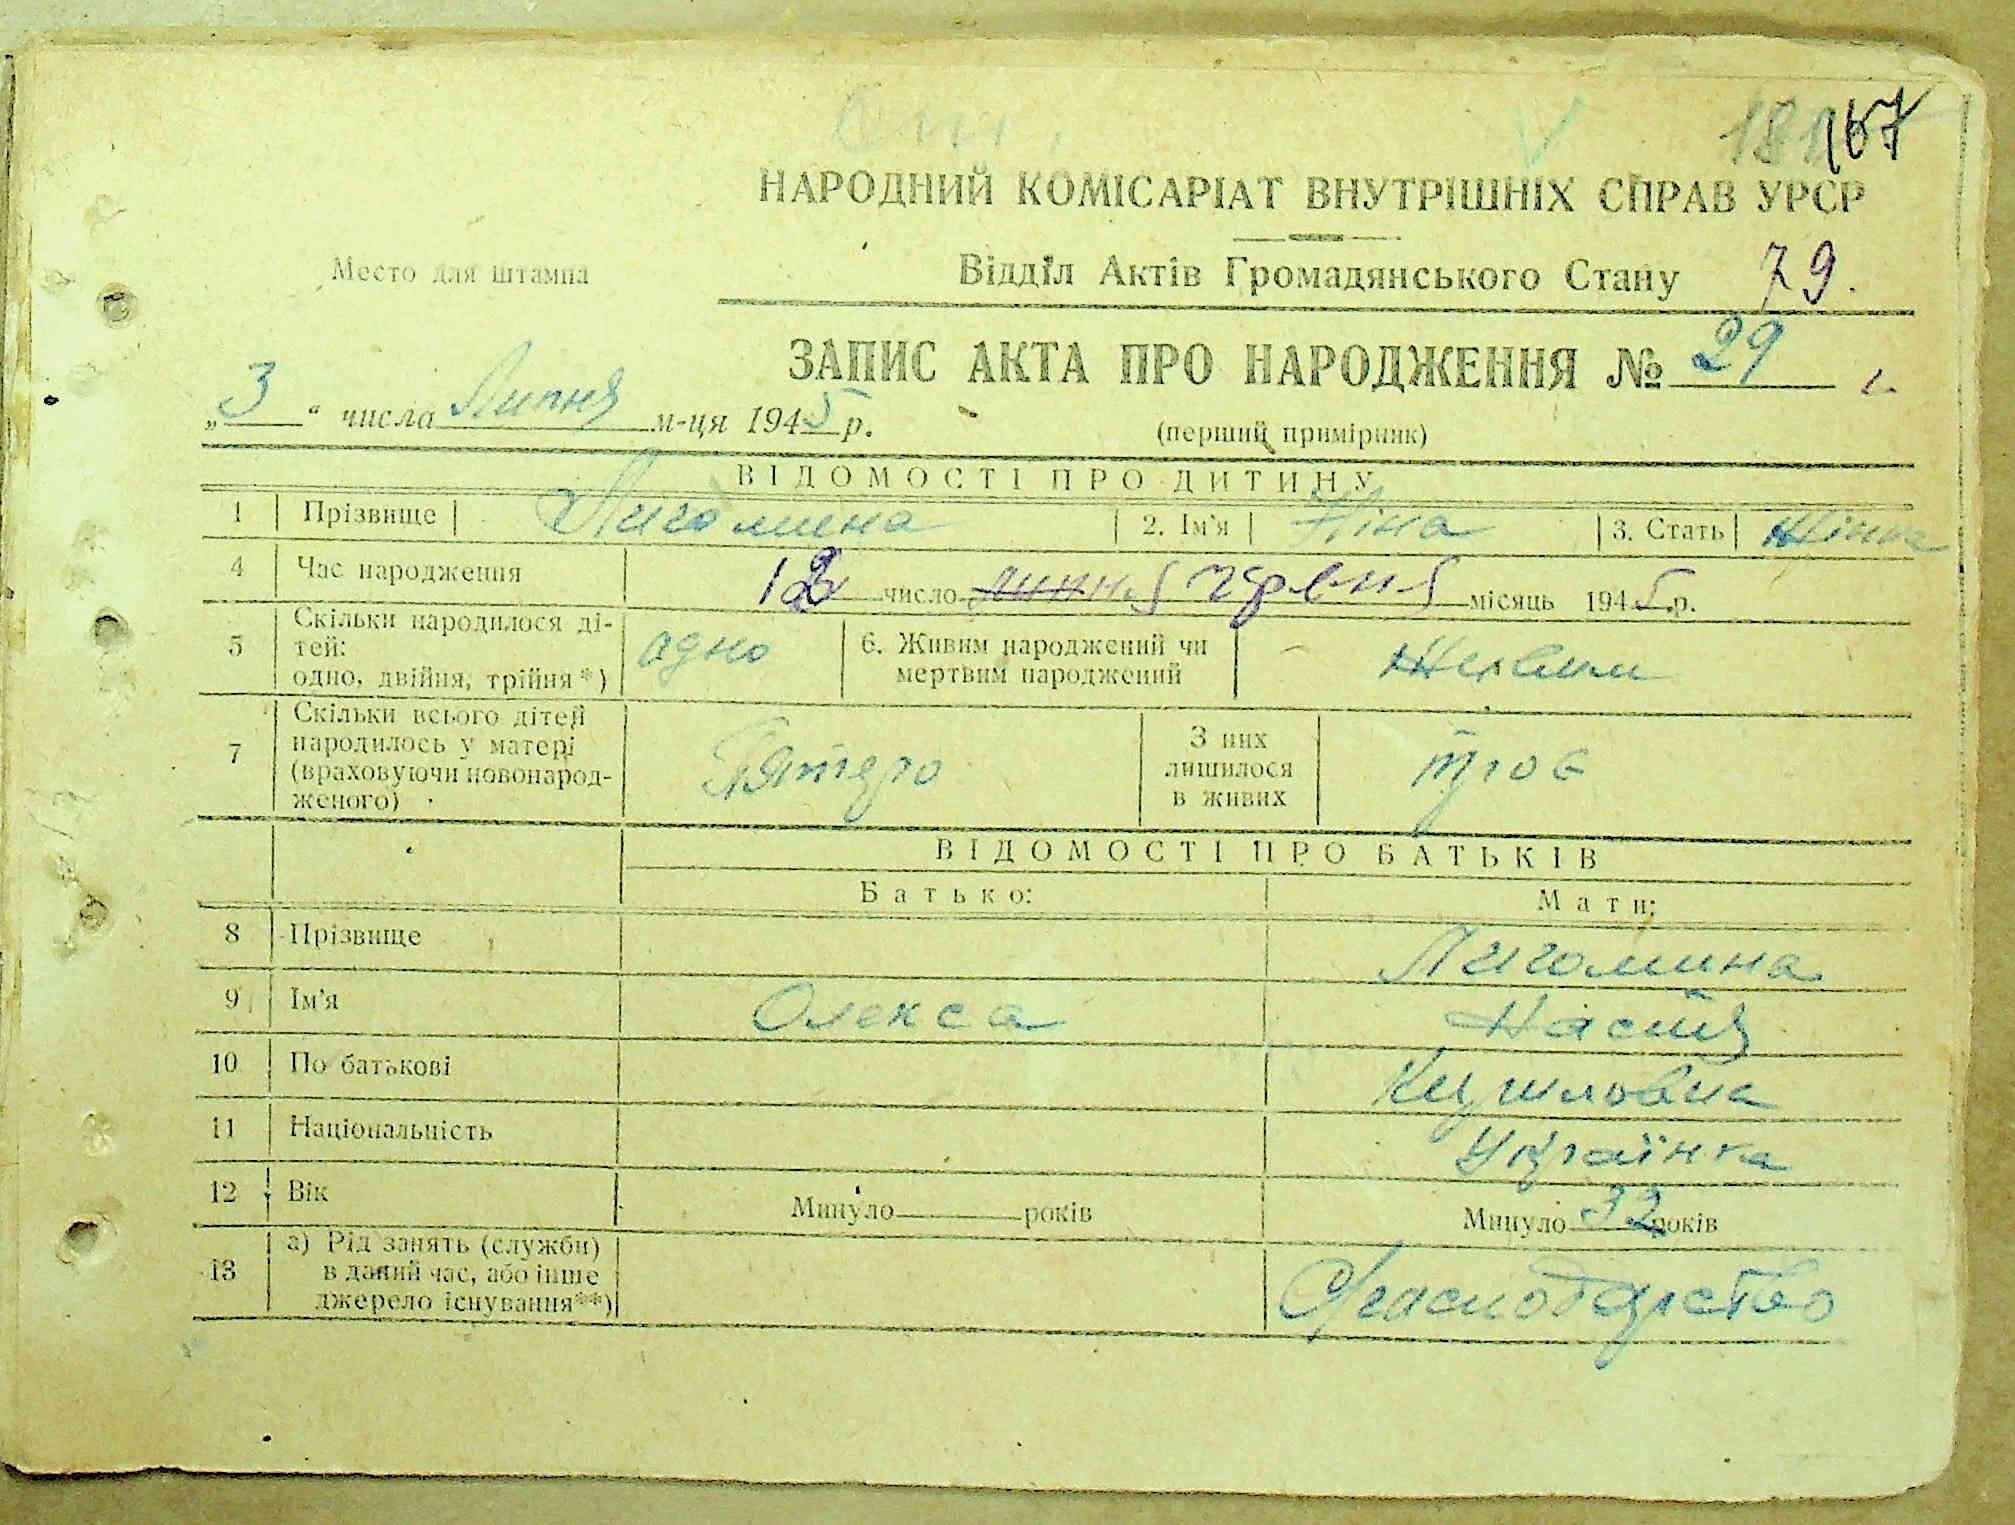 167
НАРОДНИЙ КОМІСАРІАТ ВНУТРІШНІХ СПРАВ УРСР
Место для штампа
Відділ Актів Громадянського Стану 79.
ЗАПИС АКТА ПРО НАРОДЖЕННЯ № 29
„3“ числа Липня м-ця 1945 р.
(перший примірник)
ВІДОМОСТІ ПРО ДИТИНУ
1 Прізвище Лигомина 2. Ім'я Ніна 3. Стать
4 Час народження 12 число червня місяць 1945 р.
5 Скільки народилося ді-
тей:
одно, двійня, трійня*) одно 6. Живим народжений чи
мертвим народжений Живим
7 Скільки всього дітей
народилось у матері
(враховуючи новонарод-
женого) Пятеро З них
лишилося
в живих троє
ВІДОМОСТІ ПРО БАТЬКІВ
Батько: Мати:
8 Прізвище Лигомина
9 Ім'я Олекса Настя
10 По батькові Кириловна
11 Національність Українка
12 Вік Минуло роківМинуло 32 років
13 а) Рід занять (служби)
в даний час, або інше
джерело існування**)